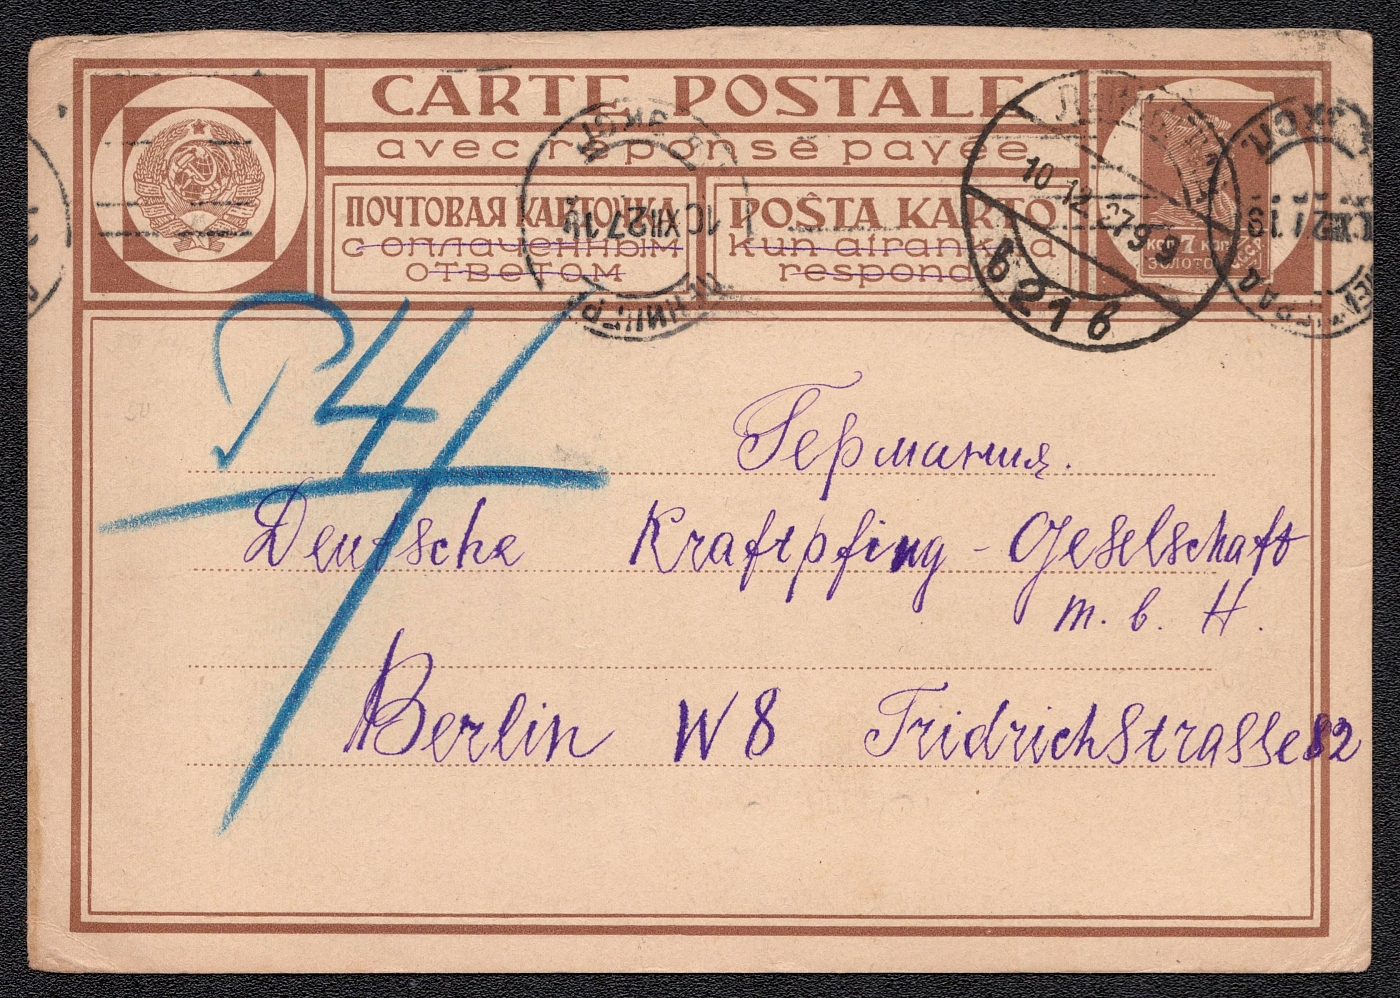 CARTE POSTALE
avec réponse payée
ПОЧТОВАЯ КАРТОЧКА
с оплаченным
ответом
POŜTA KARTO
kun afrankita
respondo
10 XII 27 1
10 12 27 9
621
КОП 7 КОП
ЗОЛОТОМ
P4
Германия.
Deutsche Kraftpfing - Gesellschaft
m. b. H.
Berlin W 8 Fridrichstrasse 82